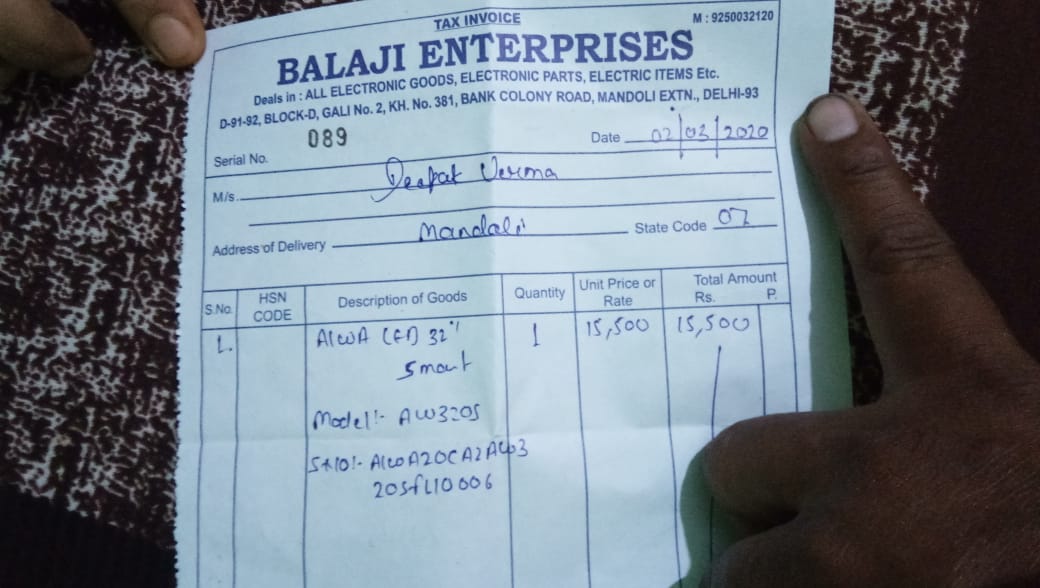 TAX INVOICE
M : 9250032120
BALAJI ENTERPRISES
Deals in : ALL ELECTRONIC GOODS, ELECTRONIC PARTS, ELECTRIC ITEMS Etc.
D-91-92, BLOCK-D, GALI No. 2, KH. No. 381, BANK COLONY ROAD, MANDOLI EXTN., DELHI-93
Serial No. 089 Date 02/03/2020
M/s. Deepak Verma
Address of Delivery Mandoli State Code 07
S.No. HSN CODE Description of Goods Quantity Unit Price or Rate Total Amount Rs. P.
1. AIWA LED 32" 1 15,500 15,500
Smart
Model:- AW320S
SNO:- AIWA20CA2AW3
20SFL10006